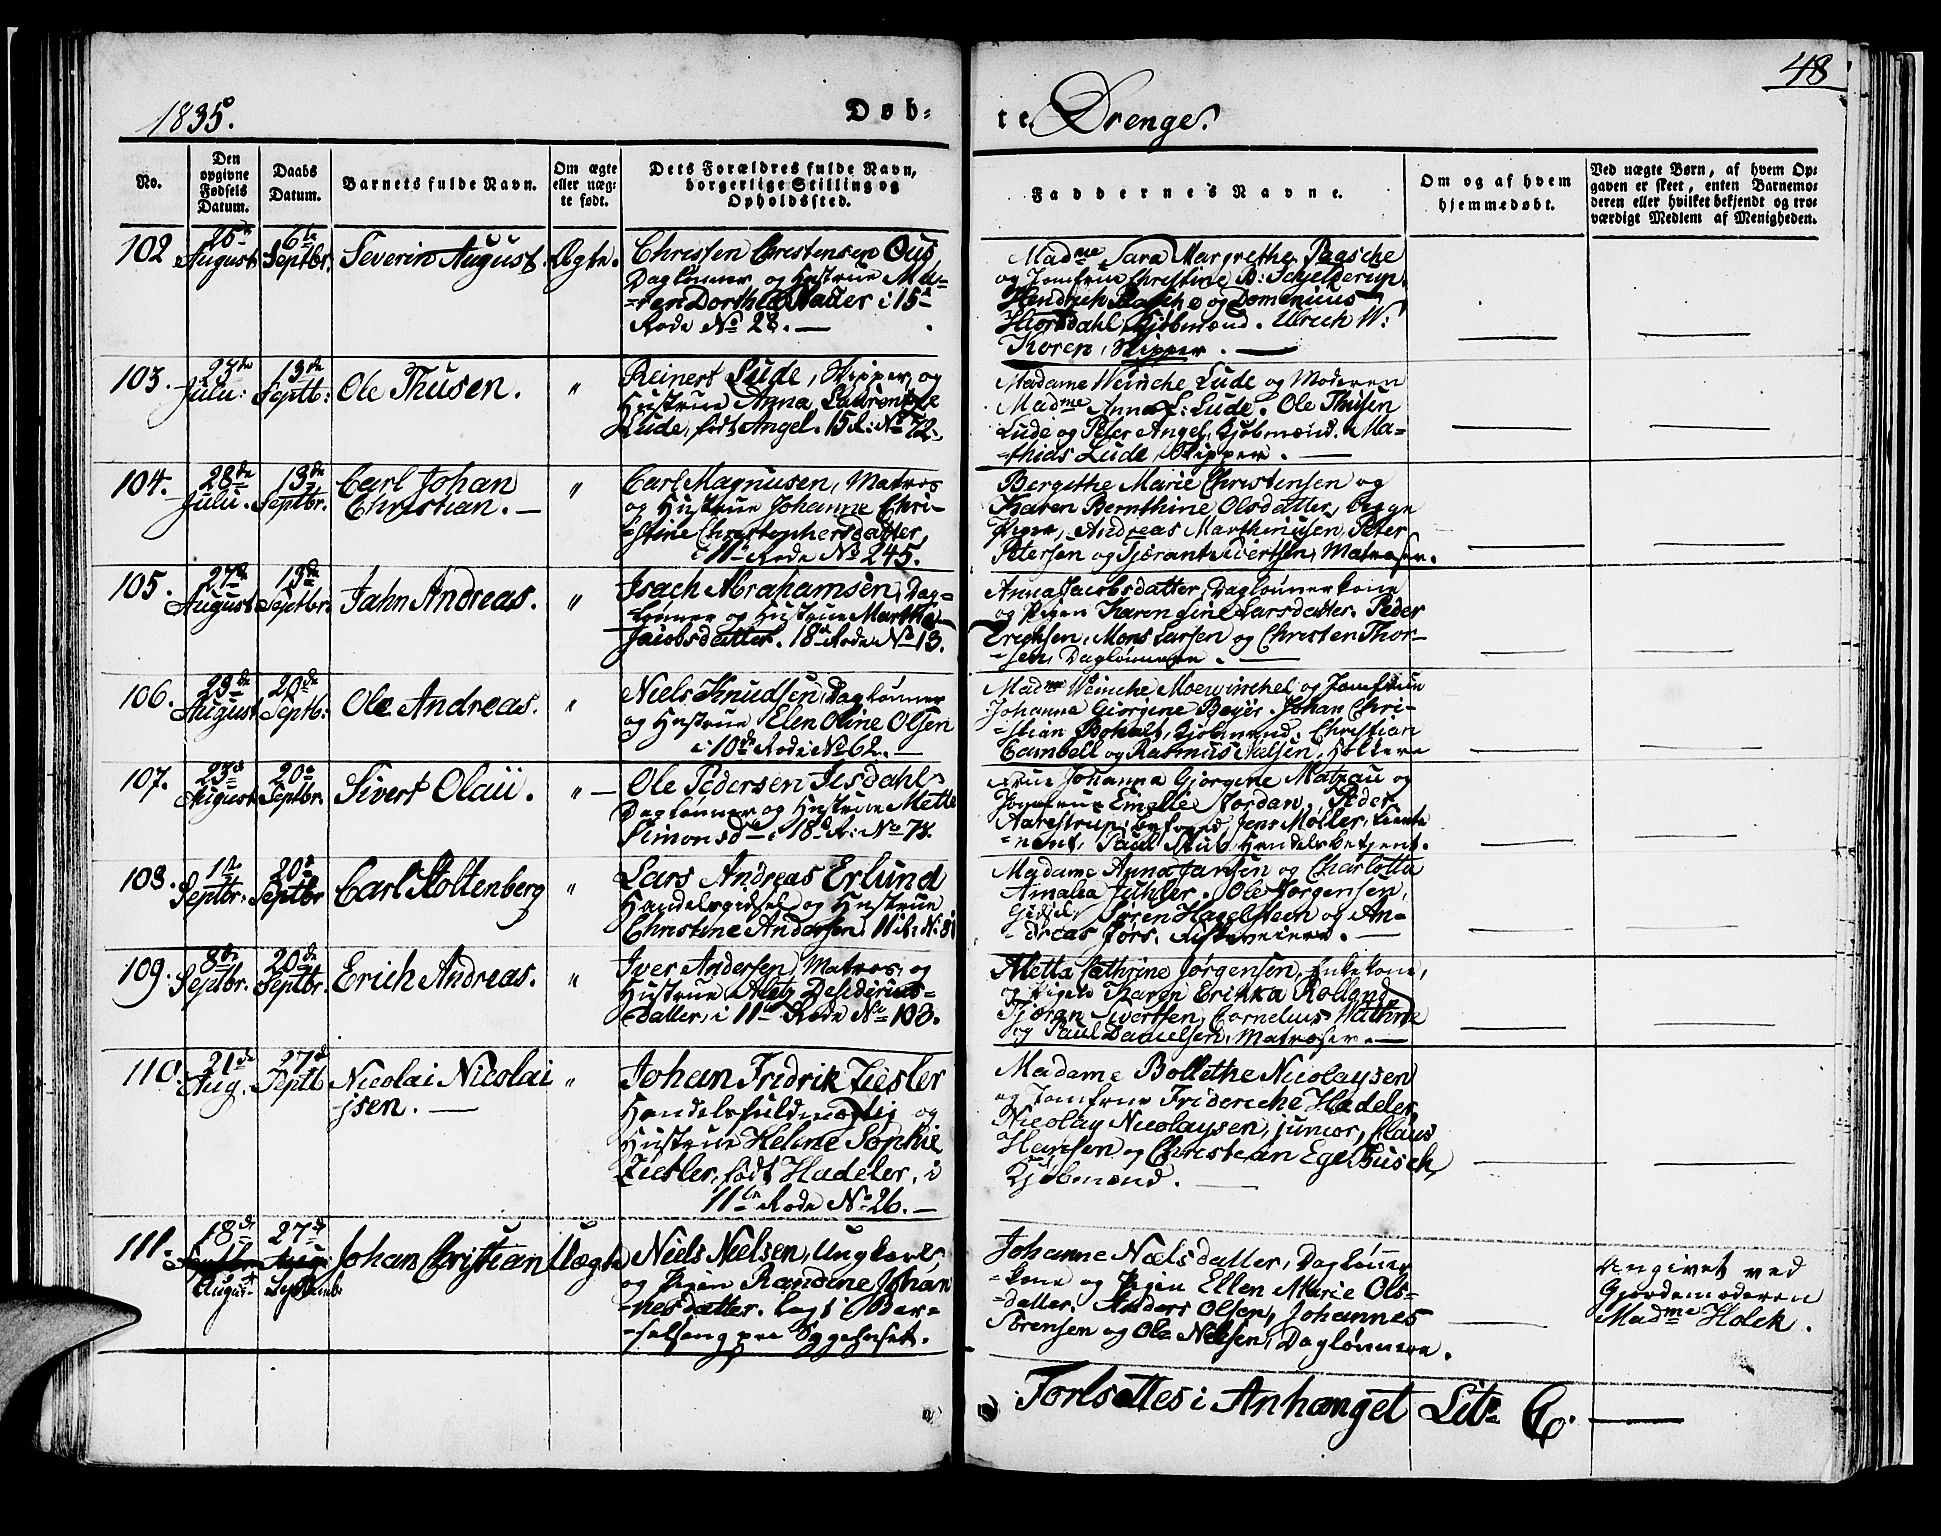 48
1835.
Døb-
te Drenge.
No.
Den opgivne Fødsels Datum.
Daabs Datum.
Barnets fulde Navn.
Om ægte eller uæg- te født.
Dets Forældres fulde Navn, borgerlige Stilling og Opholdssted.
Faddernes Navne.
Om og af hvem hjemmedøbt.
Ved uægte Børn, af hvem Op- gaven er skeet, enten Barnemo- deren eller hvilket bekjendt og tro- værdigt Medlem af Menigheden.
102
August
6te Septbr.
Severin August.
Ægte.
Christen Christensen
Daglønner og Hustrue Ma-
-ren Dorthea i 15de
Rode No 28. —
Madme Sara Margrethe Paasche
og Jomfrue Christine B: Schielderup,
Hendrich Paasche og Domenicus
Kjøbmænd. Ulrich W:
Koren, Skipper. —
103.
23de Juli:
13de Septb:
Ole Thusen.
"
Reinert Lude, Skipper og
Hustrue Anna Laurentze
Lude, født Angel. 15 R: No 72.
Madame Weinche Lude og Moderen
Madme Anna L: Lude. Ole Thusen
Lude og Peter Angel, Kjøbmænd. Ma-
-thias Lude, Skipper. —
104.
28de Juli.
13de Septbr.
Carl Johan
Christian. —
"
Carl Magnusen, Matros
og Hustrue Johanne Chri-
-stine Christophersdatter,
i 11te Rode No 245.
Bergithe Marie Christensen og
Karen Bernthine Olsdatter, begge
Piger, Andreas Marthinusen, Peter
Petersen og Tjæran Sivertsen, Matroser.
105.
27de August
13de Septbr.
Jahn Andreas.
"
Isach Abrahamsen, Dag-
-lønner og Hustrue Marthe
Jacobsdatter. 18de Rode No 13.
Anna Jacobsdatter, Daglønnerkone
og Pigen Karen Sine Larsdatter. Peder
Erichsen, Mons Larsen og Christen Thor-
-sen, Daglønnere. —
106.
23de August
20de Septb:
Ole Andreas.
"
Niels Knudsen, Daglønner
og Hustrue Elen Oline Olsen
i 10de Rode No 62. —
Madme Weinche Moewinchel og Jomfrue
Johanne Giorgine Beyer. Johan Chri-
-stian Kjøbmand. Christian
Cambell og Rasmus
107.
23de August
20de Septbr.
Sivert Olaii.
" —
Ole Pedersen Jesdahl
Daglønner og Hustrue Mette
Simonsd. i 18de R: No 78.
Frue Johanna Gjorgine Matzau og
Jomfrue Emelie Jordan, Peder
Aarestrup, Jens Møller, Lieute-
-nant, Paul Stub, Handelsbetjent.
108.
1te Septbr:
20de Septbr
Carl Stoltenberg
"
Lars Andreas Erlund
Handelsgidsel og Hustrue
Christine Andersen, 11 R: N: 81
Madame Anna Jansen og Charlotta
Amalia Juhler. Ole Jørgensen,
Gidsel, Søren Hagelsteen og An-
-dreas Jørs.
109.
8de Septbr.
20de Septbr.
Erich Andreas.
"
Iver Andersen, Matros, og
Hustrue Aletz Desiderius-
-datter, i 11te Rode No 103.
Metta Cathrine Jørgensen, Enkekone,
og Pigen Karen Erikka Rolland
Tjøran Sivertsen, Cornelius Wathne
og Paul Danielsen, Matroser. —
110.
21de Aug.
27d Septb
Nicolai Nicolai
-jsen. —
"
Johan Fridrik Ziesler
Handelsfuldmægtig og
Hustrue Helene Sophie
Ziesler, født Hadeler, i
11te Rode No 26. —
Madame Bollethe Nicolaysen
og Jomfrue Frideriche Hadeler,
Nicolay Nicolaysen, junior, Claus
Hansen og Christian Ege Busch
Kjøbmænd. —
111.
18de
August
27d
Septemb.
Johan Christian
Uægte
Niels Nielsen, Ungkarl,
og Pigen Randine Johan
-nesdatter. lagt i Bar-
-selseng paa Sygehuset.
Johanne Nielsdatter, Daglønner
-kone og Pigen Ellen Marie Ols-
-datter. Anders Olsen, Johannes
Sørensen og Ole Nielsen, Daglønnere.
Angivet ved
Gjordemoderen
Madme Holck.
Fortsættes i Anhanget Litr C. —